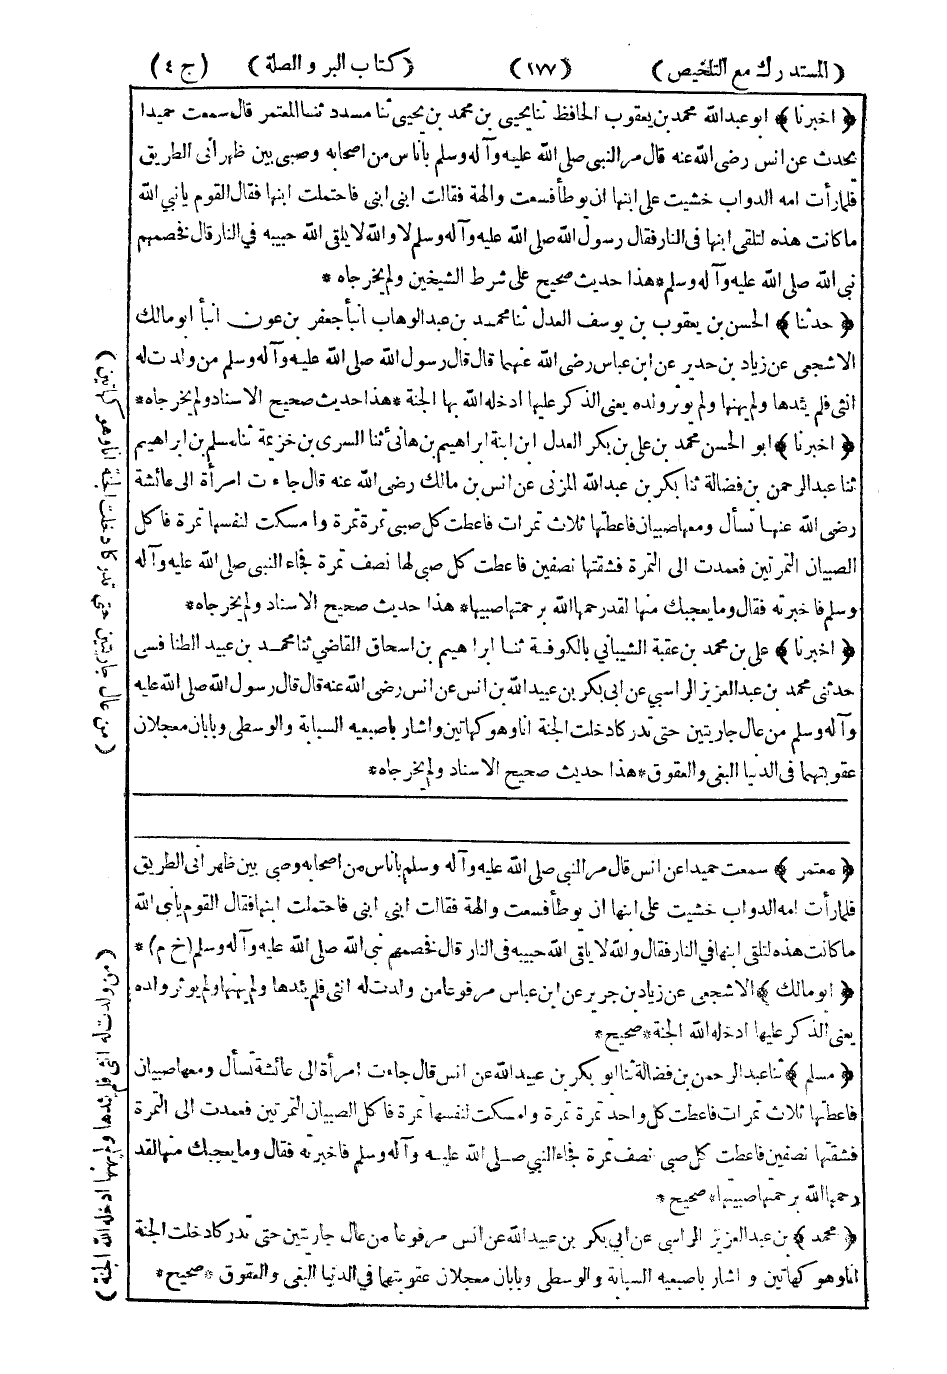 (المستدرك مع التلخيص) (١٧٧) (كتاب البر والصلة) (ج ٤)
﴿ اخبرنا ﴾ ابو عبدالله محمد بن يعقوب الحافظ ثنا يحيى بن محمد بن يحيى ثنا مسدد ثنا المعتمر قال سمعت حميدا
يحدث عن انس رضى الله عنه قال مر النبي صلى الله عليه وآله وسلم باناس من اصحابه وصبى بين ظهرانى الطريق
فلما رأت امه الدواب خشيت على ابنها ان يوطأ فسعت والهة فقالت ابنى ابنى فاحتملت ابنها فقال القوم يا نبي الله
ما كانت هذه لتلقى ابنها فى النار فقال رسول الله صلى الله عليه وآله وسلم لا والله لا يلقى الله حبيبه في النار قال فخصمهم
نبى الله صلى الله عليه وآله وسلم * هذا حديث صحيح على شرط الشيخين ولم يخرجاه *
﴿ حدثنا ﴾ الحسن بن يعقوب بن يوسف العدل ثنا محمد بن عبدالوهاب انبأ جعفر بن عون انبأ ابو مالك
الاشجعى عن زياد بن حدير عن ابن عباس رضى الله عنهما قال قال رسول الله صلى الله عليه وآله وسلم من ولدت له
انثى فلم يئدها ولم يهنها ولم يوثر ولده يعنى الذكر عليها ادخله الله بها الجنة * هذا حديث صحيح الاسناد ولم يخرجاه *
﴿ اخبرنا ﴾ ابو الحسن محمد بن على بن بكر العدل ابن ابنة ابراهيم بن هانى ثنا السرى بن خزيمة ثنا مسلم بن ابراهيم
ثنا عبدالرحمن بن فضالة ثنا بكر بن عبدالله المزنى عن انس بن مالك رضى الله عنه قال جاءت امرأة الى عائشة
رضى الله عنها تسأل ومعها صبيان فاعطتها ثلاث تمرات فاعطت كل صبى تمرة تمرة وامسكت لنفسها تمرة فاكل
الصبيان التمرتين فعمدت الى التمرة فشقتها نصفين فاعطت كل صبى لها نصف تمرة فجاء النبي صلى الله عليه وآله
وسلم فاخبرته فقال وما يعجبك منها لقد رحمها الله برحمتها صبيها * هذا حديث صحيح الاسناد ولم يخرجاه *
﴿ اخبرنا ﴾ على بن محمد بن عقبة الشيباني بالكوفة ثنا ابراهيم بن اسحاق القاضي ثنا محمد بن عبيد الطنافسى
حدثنى محمد بن عبدالعزيز الراسبي عن ابى بكر بن عبيدالله بن انس عن انس رضى الله عنه قال قال رسول الله صلى الله عليه
وآله وسلم من عال جاريتين حتى تدركا دخلت الجنة انا وهو كهاتين واشار باصبعيه السبابة والوسطى وبابان معجلان
عقوبتهما فى الدنيا البغى والعقوق * هذا حديث صحيح الاسناد ولم يخرجاه *
﴿ معتمر ﴾ سمعت حميدا عن انس قال مر النبي صلى الله عليه وآله وسلم باناس من اصحابه وصبى بين ظهرانى الطريق
فلما رأت امه الدواب خشيت على ابنها ان يوطأ فسعت والهة فقالت ابنى ابنى فاحتملت ابنها فقال القوم يا نبى الله
ما كانت هذه لتلقى ابنها في النار فقال والله لا يلقى الله حبيبه فى النار قال فخصمهم نبى الله صلى الله عليه وآله وسلم (خ م) *
﴿ ابو مالك ﴾ الاشجعى عن زياد بن جرير عن ابن عباس مرفوعا من ولدت له انثى فلم يئدها ولم يهنها ولم يوثر ولده
يعنى الذكر عليها ادخله الله الجنة * صحيح *
﴿ مسلم ﴾ ثنا عبدالرحمن بن فضالة ثنا ابو بكر بن عبيدالله عن انس قال جاءت امرأة الى عائشة تسأل ومعها صبيان
فاعطتها ثلاث تمرات فاعطت كل واحد تمرة تمرة وامسكت لنفسها تمرة فاكل الصبيان التمرتين فعمدت الى التمرة
فشقتها نصفين فاعطت كل صبى نصف تمرة فجاء النبي صلى الله عليه وآله وسلم فاخبرته فقال وما يعجبك منها لقد
رحمها الله برحمتها صبيها * صحيح *
﴿ محمد ﴾ بن عبدالعزيز الراسبى عن أبي بكر بن عبيدالله عن انس مرفوعا من عال جاريتين حتى تدركا دخلت الجنة
انا وهو كهاتين واشار باصبعيه السبابة والوسطى وبابان معجلان عقوبتهما في الدنيا البغى والعقوق * صحيح *
(من عال جاريتين حتى تدركا دخلت الجنة انا وهو كهاتين)
(من ولدت له انثى فلم يئدها ولم يهنها ادخله الله الجنة)